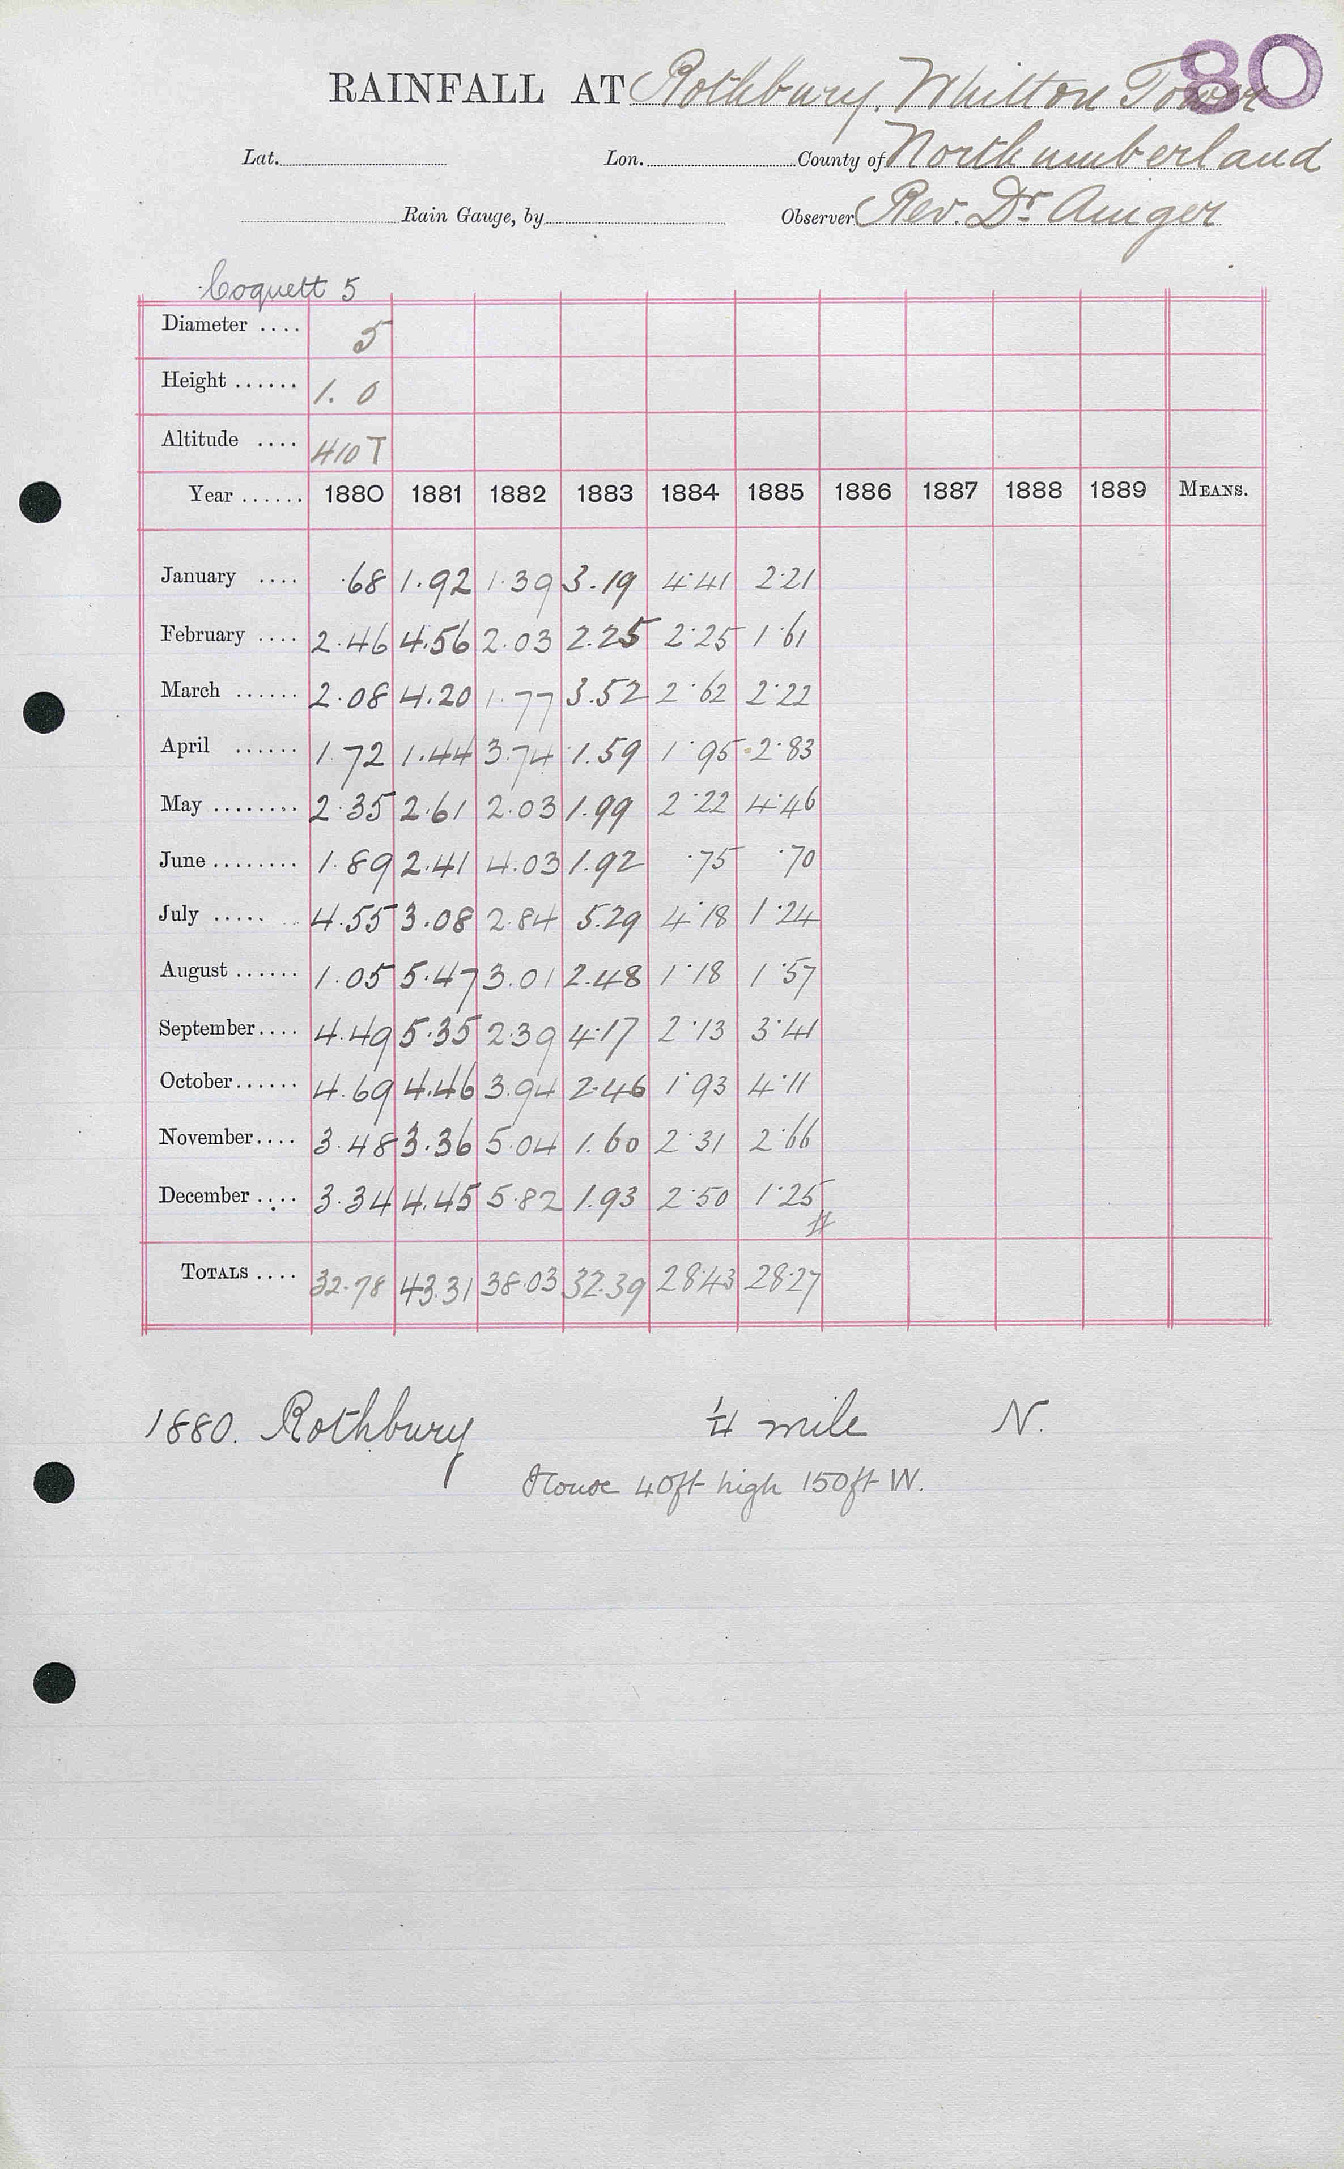 80
RAINFALL AT Rothbury, Whitton Tower
Lat. Lon. County of Northumberland
Rain Gauge, by Observer Rev. Dr. Ainger
Coquett 5
Diameter .... 5
Height ...... 1. 0
Altitude .... 410 T
Year ...... 1880 1881 1882 1883 1884 1885 1886 1887 1888 1889 MEANS.
January .... .68 1.92 1.39 3.19 4.41 2.21
February .... 2.46 4.56 2.03 2.25 2.25 1.61
March ...... 2.08 4.20 1.77 3.52 2.62 2.22
April ...... 1.72 1.44 3.74 1.59 1.95 2.83
May ........ 2.35 2.61 2.03 1.99 2.22 4.46
June ........ 1.89 2.41 4.03 1.92 .75 .70
July ..... 4.55 3.08 2.84 5.29 4.18 1.24
August ...... 1.05 5.47 3.01 2.48 1.18 1.57
September .... 4.49 5.35 2.39 4.17 2.13 3.41
October ...... 4.69 4.46 3.94 2.46 1.93 4.11
November .... 3.48 3.36 5.04 1.60 2.31 2.66
December .... 3.34 4.45 5.82 1.93 2.50 1.25
#
TOTALS .... 32.78 43.31 38.03 32.39 28.43 28.27
1880. Rothbury ¼ mile N.
House 40ft high 150ft W.